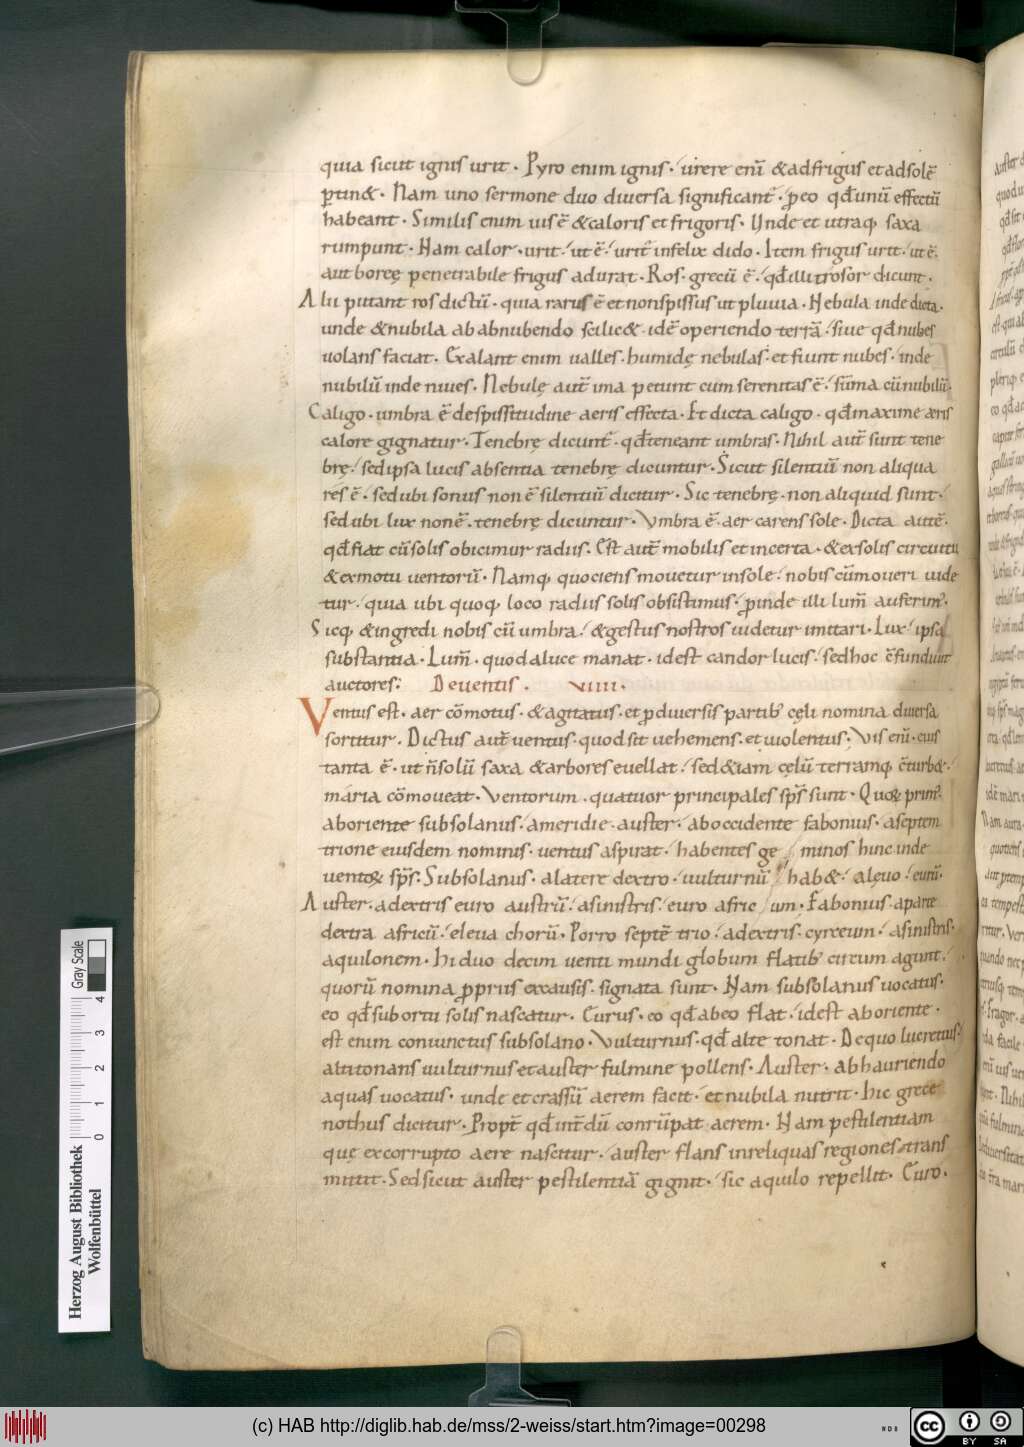 quia sicut ignis urit · Pyro enim ignis · urere eni̅ & ad frigus et ad sole̅
ꝑtin& · Nam uno sermone duo diuersa significant̅ · ꝓ eo qđ unu̅ effectu̅
habeant · Similis enim uis e̅ & caloris et frigoris · Unde et utraq; saxa
rumpunt · Nam calor · urit · ut e̅ · urit̅ infelix dido · Item frigus urit · ut e̅ ·
aut boreę penetrabile frigus adurat · Ros · grecu̅ e̅ · qđ illi trosor dicunt ·
Alii putant ros dictu̅ · quia rarus e̅ et non spissus ut pluuia · Nebula inde dicta ·
unde & nubila ab abnubendo scilic& · ide̅ operiendo terra̅ · siue qđ nubes
uolans faciat · Exalant enim ualles · humidę nebulas · et fiunt nubes · inde
nubilu̅ inde niues · Nebulę aut̅ ima petunt cum serenitas e̅ · su̅ma cu̅ nubilu̅ ·
Caligo · umbra e̅ de spissitudine aeris effecta · Et dicta caligo · qđ maxime aeris
calore gignatur · Tenebrę dicunt̅ · qđ teneant umbras · Nihil aut̅ sunt tene
brę · sed ipsa lucis absentia tenebrę dicuntur · Sicut silentiu̅ non aliqua
res e̅ · sed ubi sonus non e̅ silentiu̅ dicitur · Sic tenebrę · non aliquid sunt ·
sed ubi lux non e̅ · tenebrę dicuntur · Vmbra e̅ · aer carens sole · Dicta aute̅ ·
qđ fiat cu̅ solis obicimur radiis · Est aut̅ mobilis et incerta · & ex solis circuitu
& ex motu uentoru̅ · Namq; quociens mouetur in sole · nobis cu̅ moueri uide
tur · quia ubi quoq; loco radiis solis obsistimus · ꝓinde illi lum̅ auferim᷒ ·
Sicq; & ingredi nobis cu̅ umbra · & gestus nostros uidetur imitari · Lux · ipsa
substantia · Lum̅ · quod a luce manat · id est candor lucis · sed hoc c̅fundunt
auctores : De uentis · VIIII ·
Ventus est · aer co̅motus · & agitatus · et ꝓ diuersis partib; cęli nomina diuersa
sortitur · Dictus aut̅ uentus · quod sit uehemens · et uiolentus · Vis eni̅ · eius
tanta e̅ · ut n̅ solu̅ saxa & arbores euellat · sed & iam cęlu̅ terramq; c̅turb& ·
maria co̅moueat · Ventorum · quatuor principales sp̅s sunt · Quoꝝ prim᷒ ·
ab oriente subsolanus · a meridie · auster · ab occidente fabonius · a septem
trione eiusdem nominis · uentus aspirat · habentes ge minos hinc inde
uentoꝝ sp̅s · Subsolanus · a latere dextro · uulturnu̅ hab& · a lęuo · euru̅ ·
Auster · a dextris euro austru̅ · a sinistris · euro afric um · Fabonius a parte
dextra africu̅ · e leua choru̅ · Porro septe̅ trio · a dextris · cyrceum · a sinistris ·
aquilonem · Hi duo decim uenti mundi globum flatib; circum agunt ·
quoru̅ nomina ꝓpriis ex causis · signata sunt · Nam subsolanus uocatus ·
eo qđ sub ortu solis nascatur · Eurus · eo qđ ab eo flat · id est ab oriente ·
est enim coniunctus subsolano · Vulturnus · qđ alte tonat · De quo lucretius ·
altitonans uulturnus · et auster fulmine pollens · Auster · ab hauriendo
aquas uocatus · unde et crassu̅ aerem facit · et nubila nutrit · hic grece
nothus dicitur · Propt̅ qđ int̅du̅ conru̅pat aerem · Nam pestilentiam
quę ex corrupto aere nascitur · auster flans in reliquas regiones trans
mittit · Sed sicut auster pestilentia̅ gignit · sic aquilo repellit · Curo ·
Herzog August Bibliothek
Wolfenbüttel
0 1 2 3 4 Gray Scale
(c) HAB http://diglib.hab.de/mss/2-weiss/start.htm?image=00298
cc BY SA